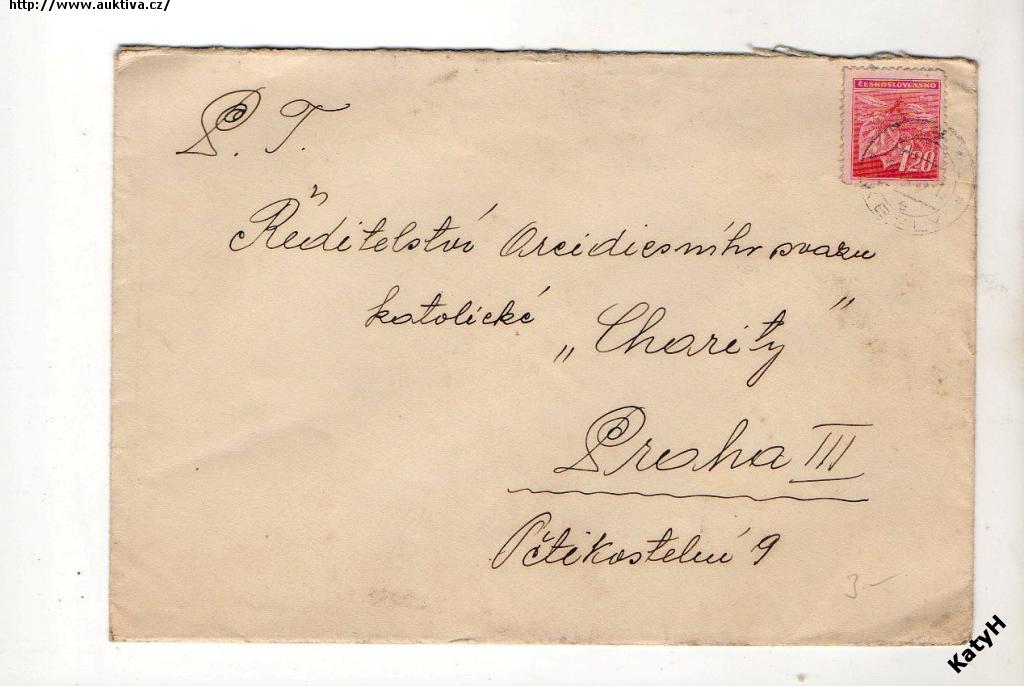 http://www.auktiva.cz/
P. T.
ČESKOSLOVENSKO
1.20
Ředitelství Arcidiecésního svazu
katolické
„Charity“
Praha III
Pětikostelní 9
3-
KatyH